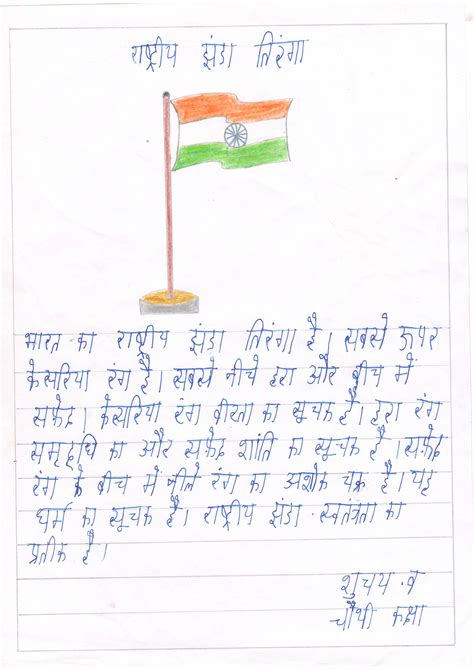 राष्ट्रीय झंडा तिरंगा
भारत का राष्ट्रीय झंडा तिरंगा है। सबसे ऊपर
केसरिया रंग है। सबसे नीचे हरा और बीच में
सफ़ेद। केसरिया रंग वीरता का सूचक है। हरा रंग
समृद्धि का और सफ़ेद शांति का सूचक है। सफ़ेद
रंग के बीच में नीले रंग का अशोक चक्र है। यह
धर्म का सूचक है। राष्ट्रीय झंडा स्वतंत्रता का
प्रतीक है।
शुचय . व
चौथी कक्षा